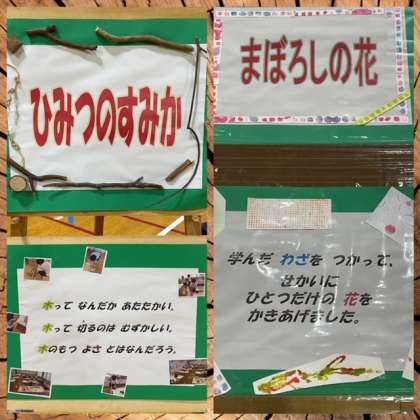 ひみつのすみか
木って なんだか あたたかい。
木って 切るのは むずかしい。
木のもつ よさ とはなんだろう。
まぼろしの花
学んだ わざを つかって、
せかいに
ひとつだけの 花を
かきあげました。